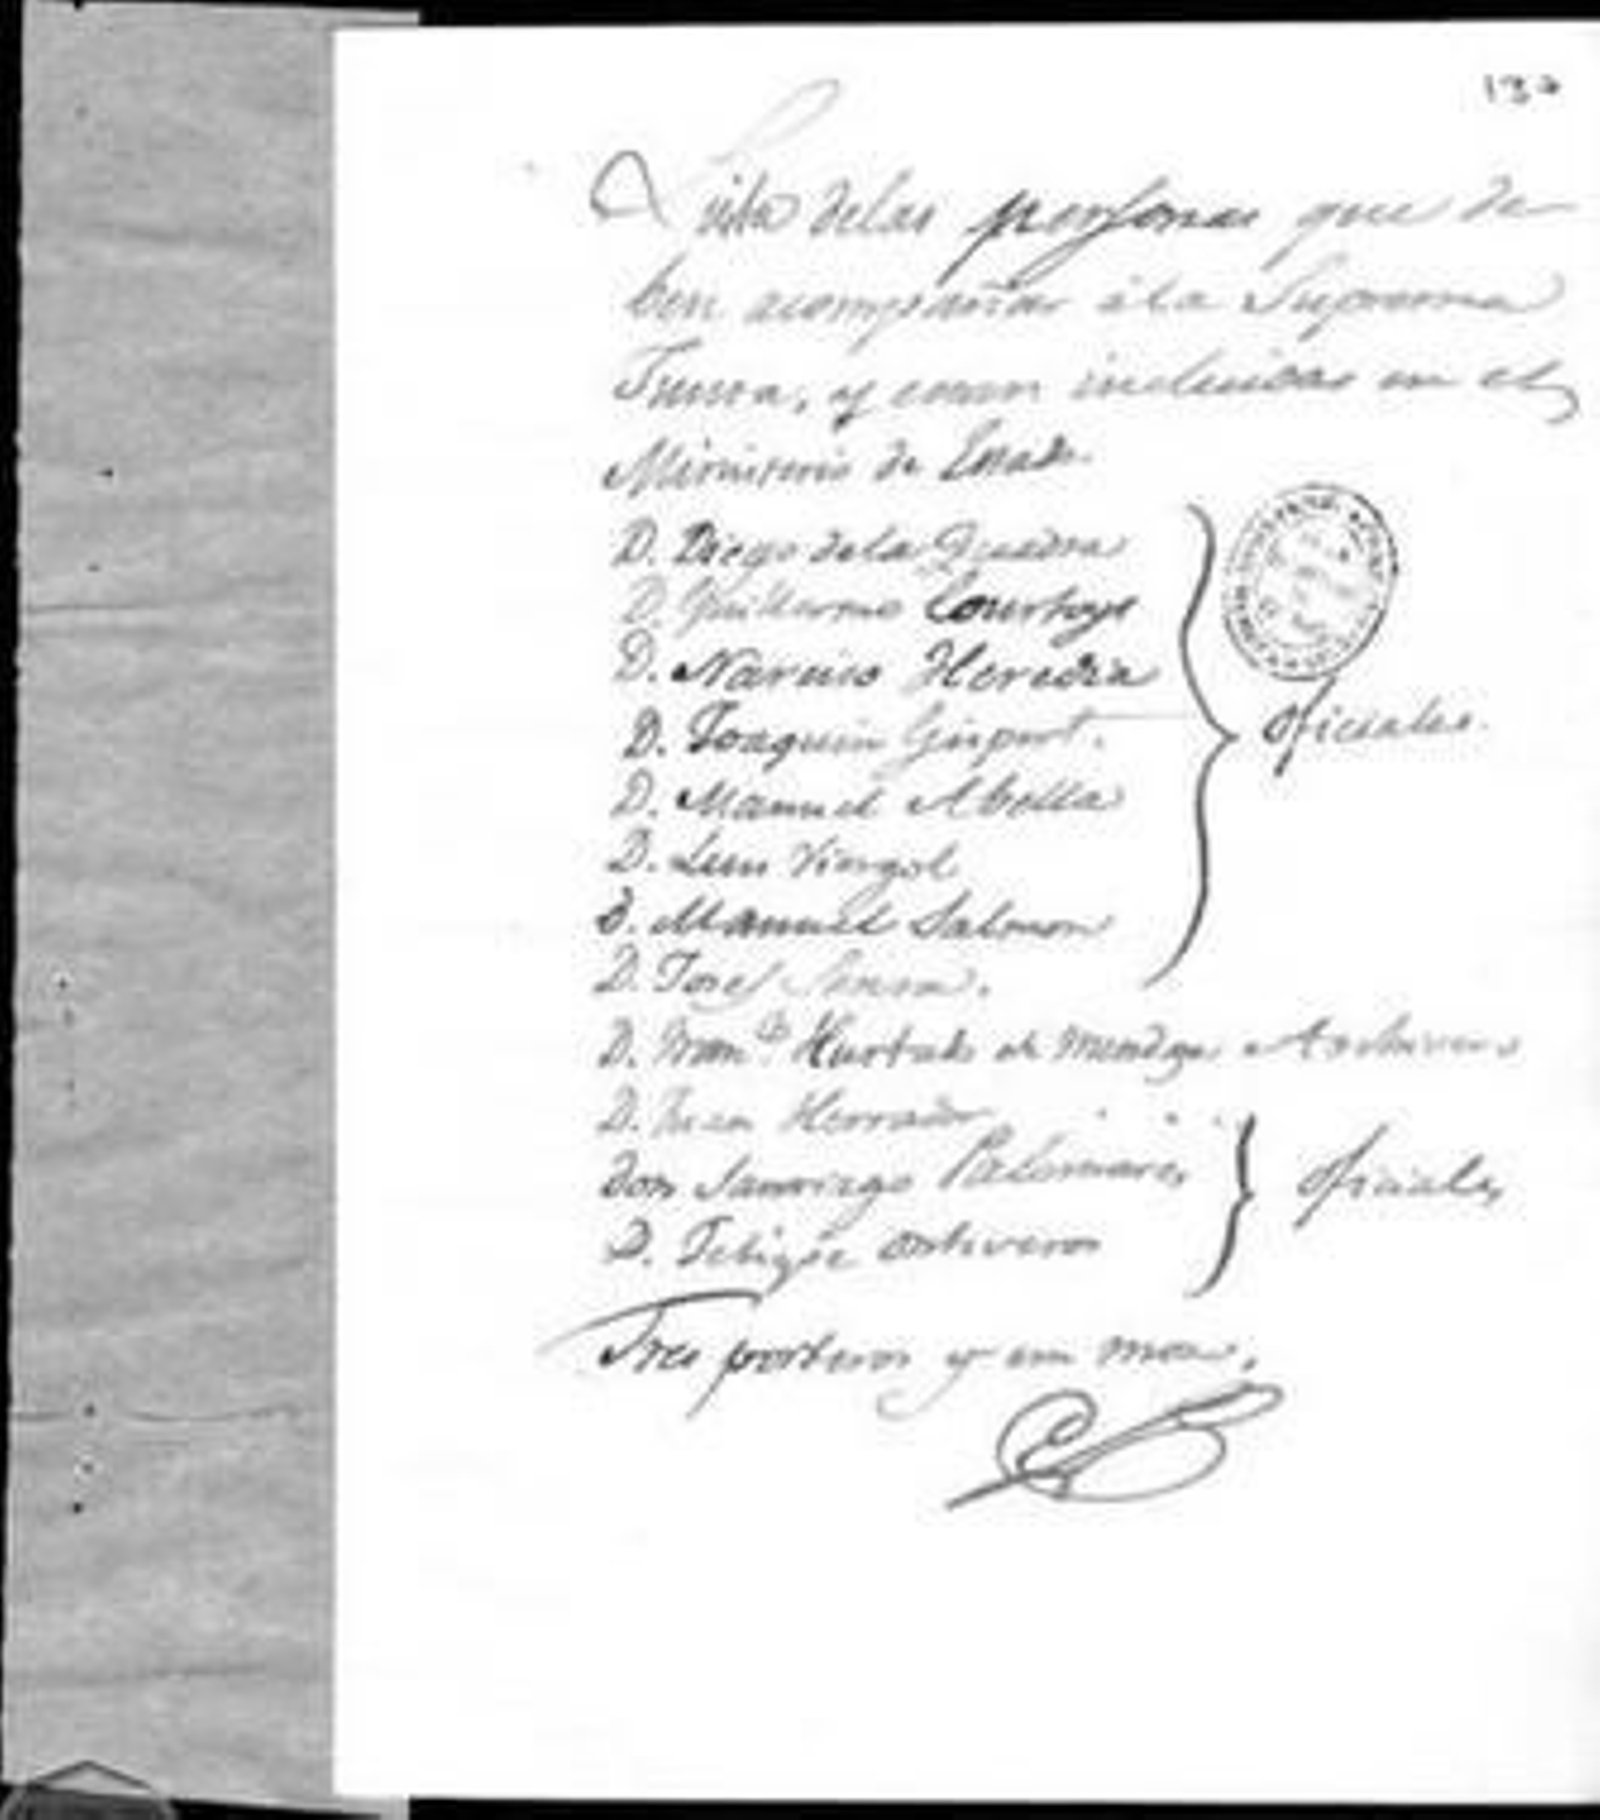 132
Lista delas personas que de
ben acompañar á la Suprema
Junta, y estan incluidas en el
Ministerio de Estado.
D. Diego dela Quadra
D. Guillermo Courtoys
D. Narciso Heredia
D. Joaquin
D. Manuel Abella
D. Luis Viergol
D. Manuel Salmon
oficiales.
D. Josef
D. Hurtado de Mendoza Archivero
D. Juan Herrador
Don Santiago Palomares
D. Felipe Ontiveros
oficiales
Tres porteros y un mozo.